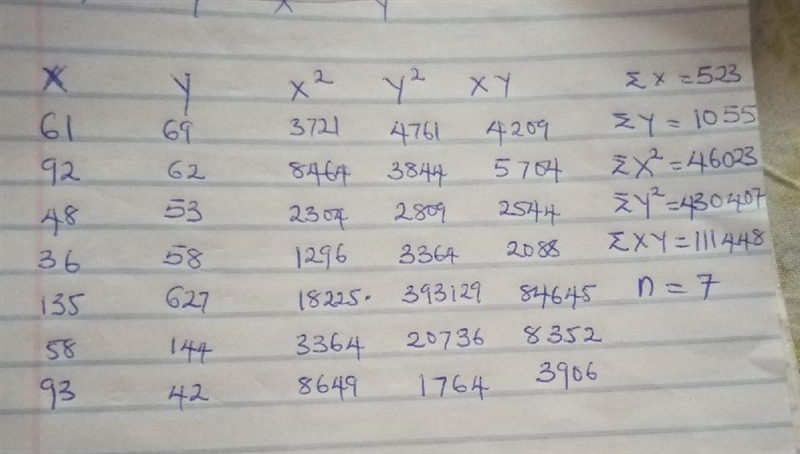 X Y X² Y² XY Σ X = 523
61 69 3721 4761 4209 Σ Y = 1055
92 62 8464 3844 5704 Σ X² = 46023
48 53 2304 2809 2544 Σ Y² = 430407
36 58 1296 3364 2088 Σ XY = 111448
135 627 18225. 393129 84645 n = 7
58 144 3364 20736 8352
93 42 8649 1764 3906